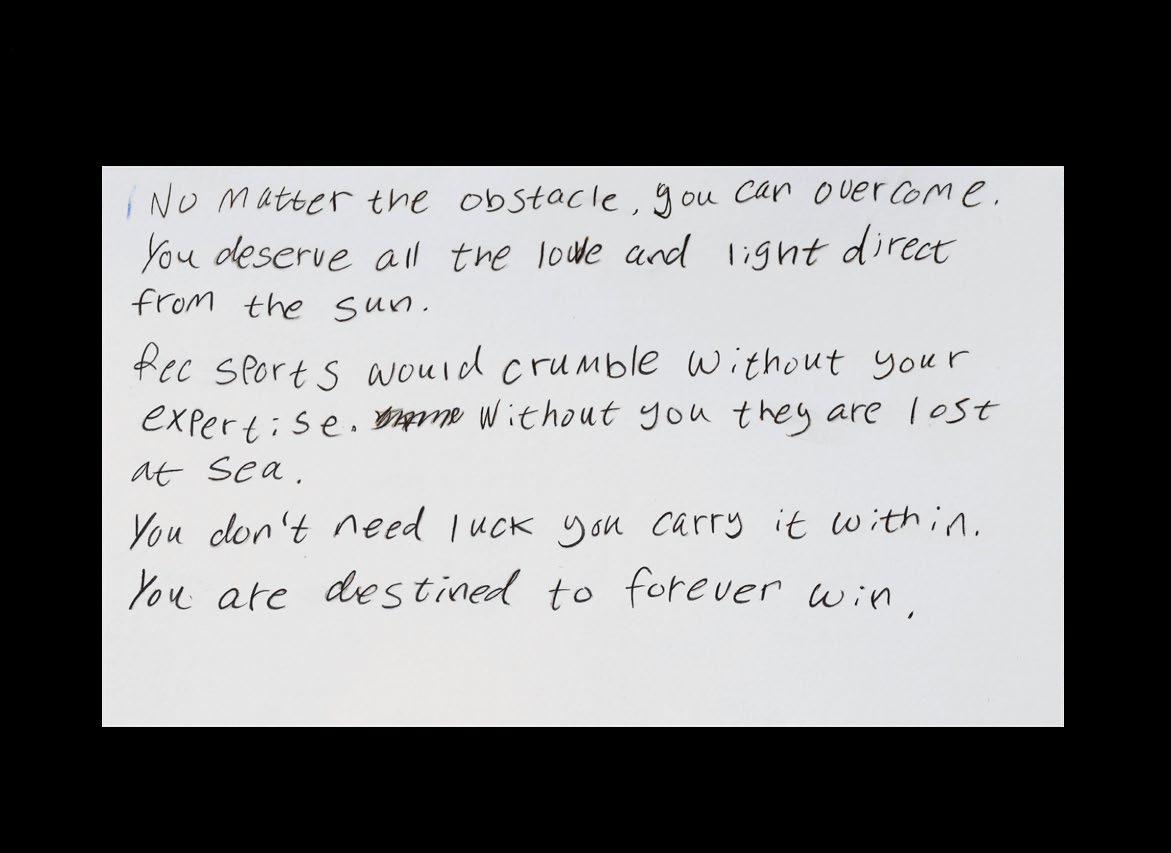 No matter the obstacle, you can overcome.
You deserve all the love and light direct
from the sun.
Rec sports would crumble without your
expertise. Without you they are lost
at sea.
You don't need luck you carry it within.
You are destined to forever win.